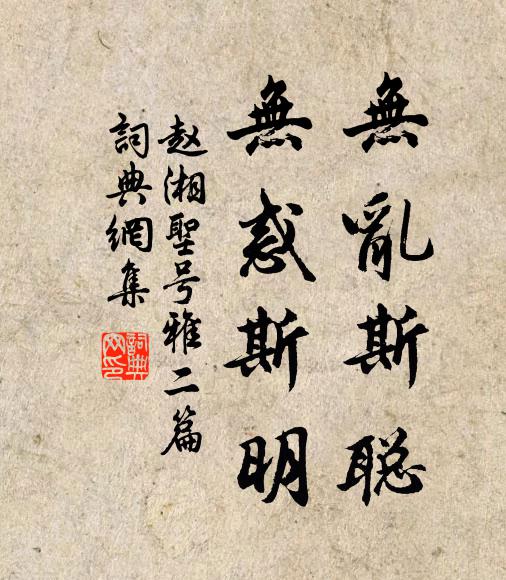 無亂斯聡
無惑斯明
赵湘聖号雅二篇
詞典網集
詞典网印